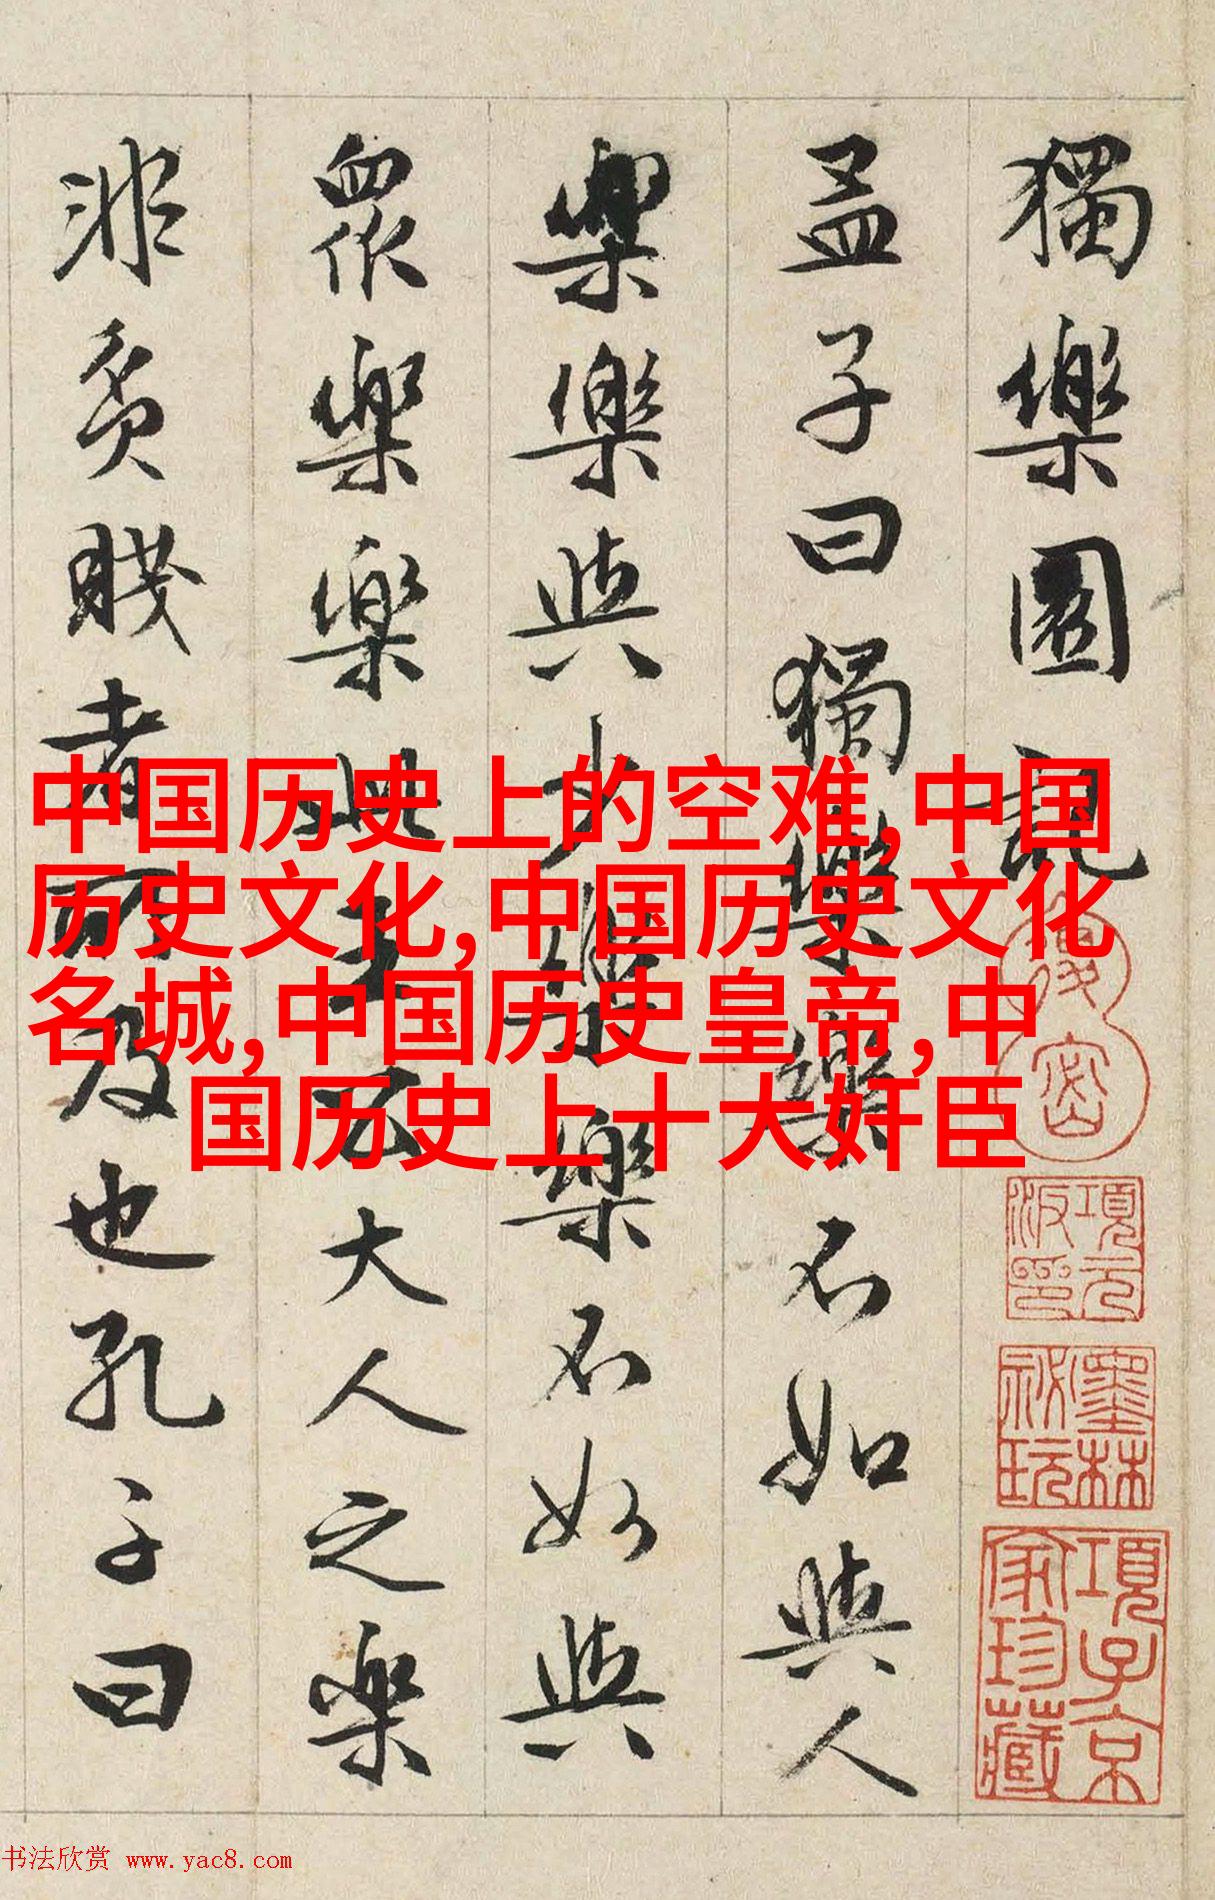 獨樂園記
孟子曰獨樂樂不如與人
樂樂與少樂樂不如與
眾樂樂此王公大人之樂
非貧賤者所及也孔子曰
中国历史上的空难,中国
历史文化,中国历史文化
名城,中国历史皇帝,中
国历史上十大奸臣
項元
汴印
墨林
祕玩
項子京
家珍藏
书法欣赏 www.yac8.com